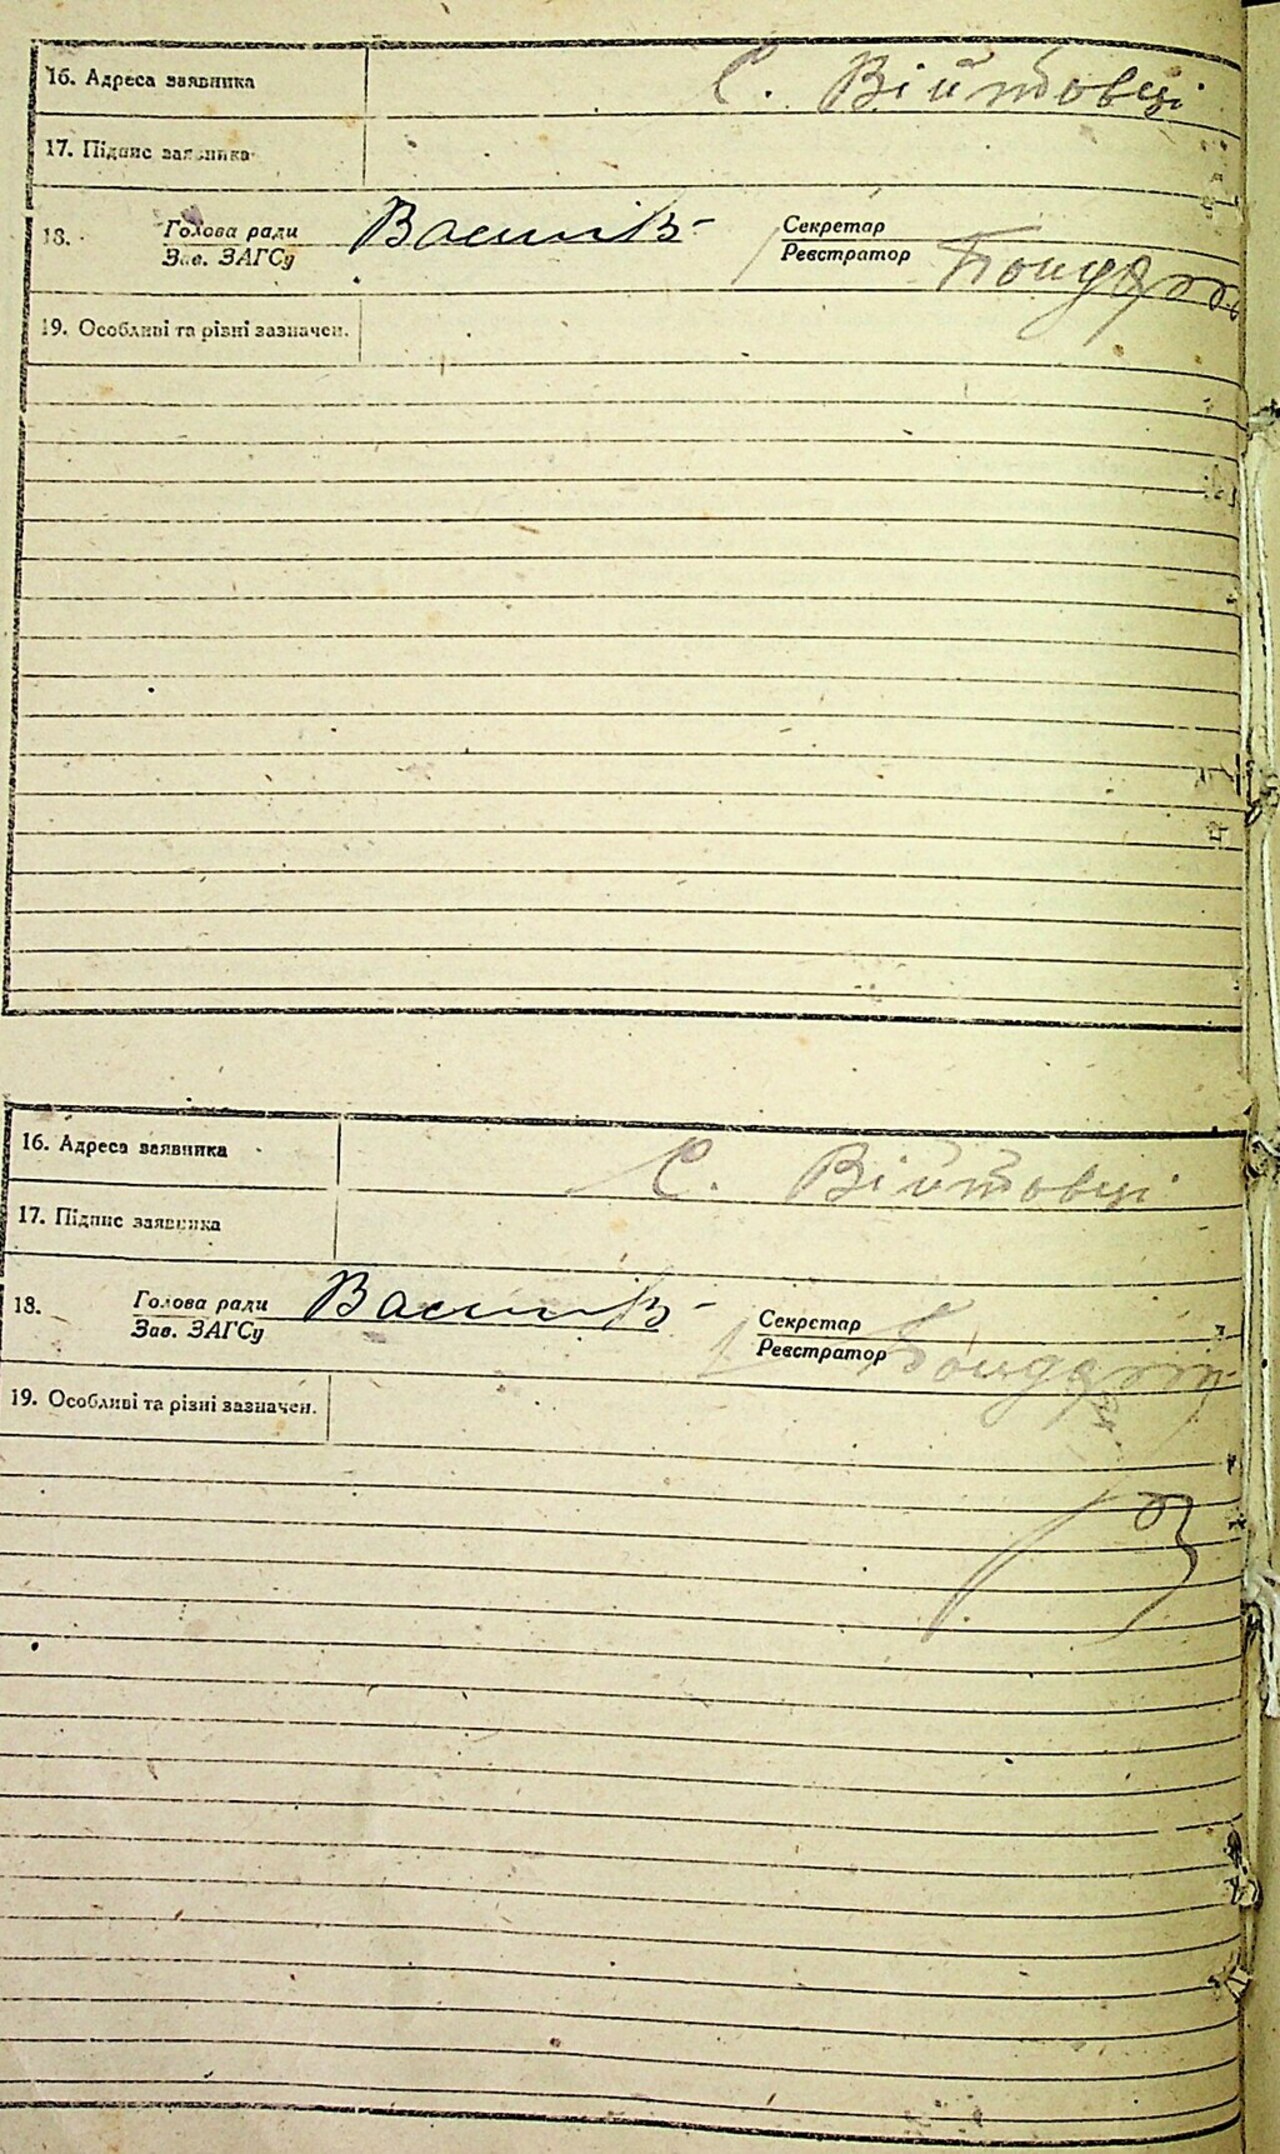 16. Адреса заявника С. Війтовці
17. Підпис заявника
18. Голова ради Секретар
Зав. ЗАГСу Реєстратор
19. Особливі та різні зазначен.
16. Адреса заявника С. Війтовці
17. Підпис заявника
18. Голова ради Секретар
Зав. ЗАГСу Реєстратор
19. Особливі та різні зазначен.